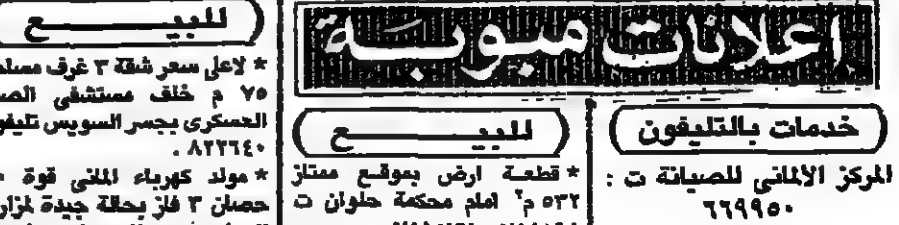 اعلانات مبوبة
خدمات بالتليفون
المركز الالمانى للصيانة ت :
٦٦٩٩٥٠
للبيع
* قطعة ارض بموقع ممتاز
٥٣٢ م٢ امام محكمة حلوان ت
للبيع
* لاعلى سعر شقة ٣ غرف
٧٥ م خلف مستشفى
العسكرى بجسر السويس
٨٢٢٦٤٠ .
* مولد كهرباء المانى قوة
حصان ٣ فاز بحالة جيدة